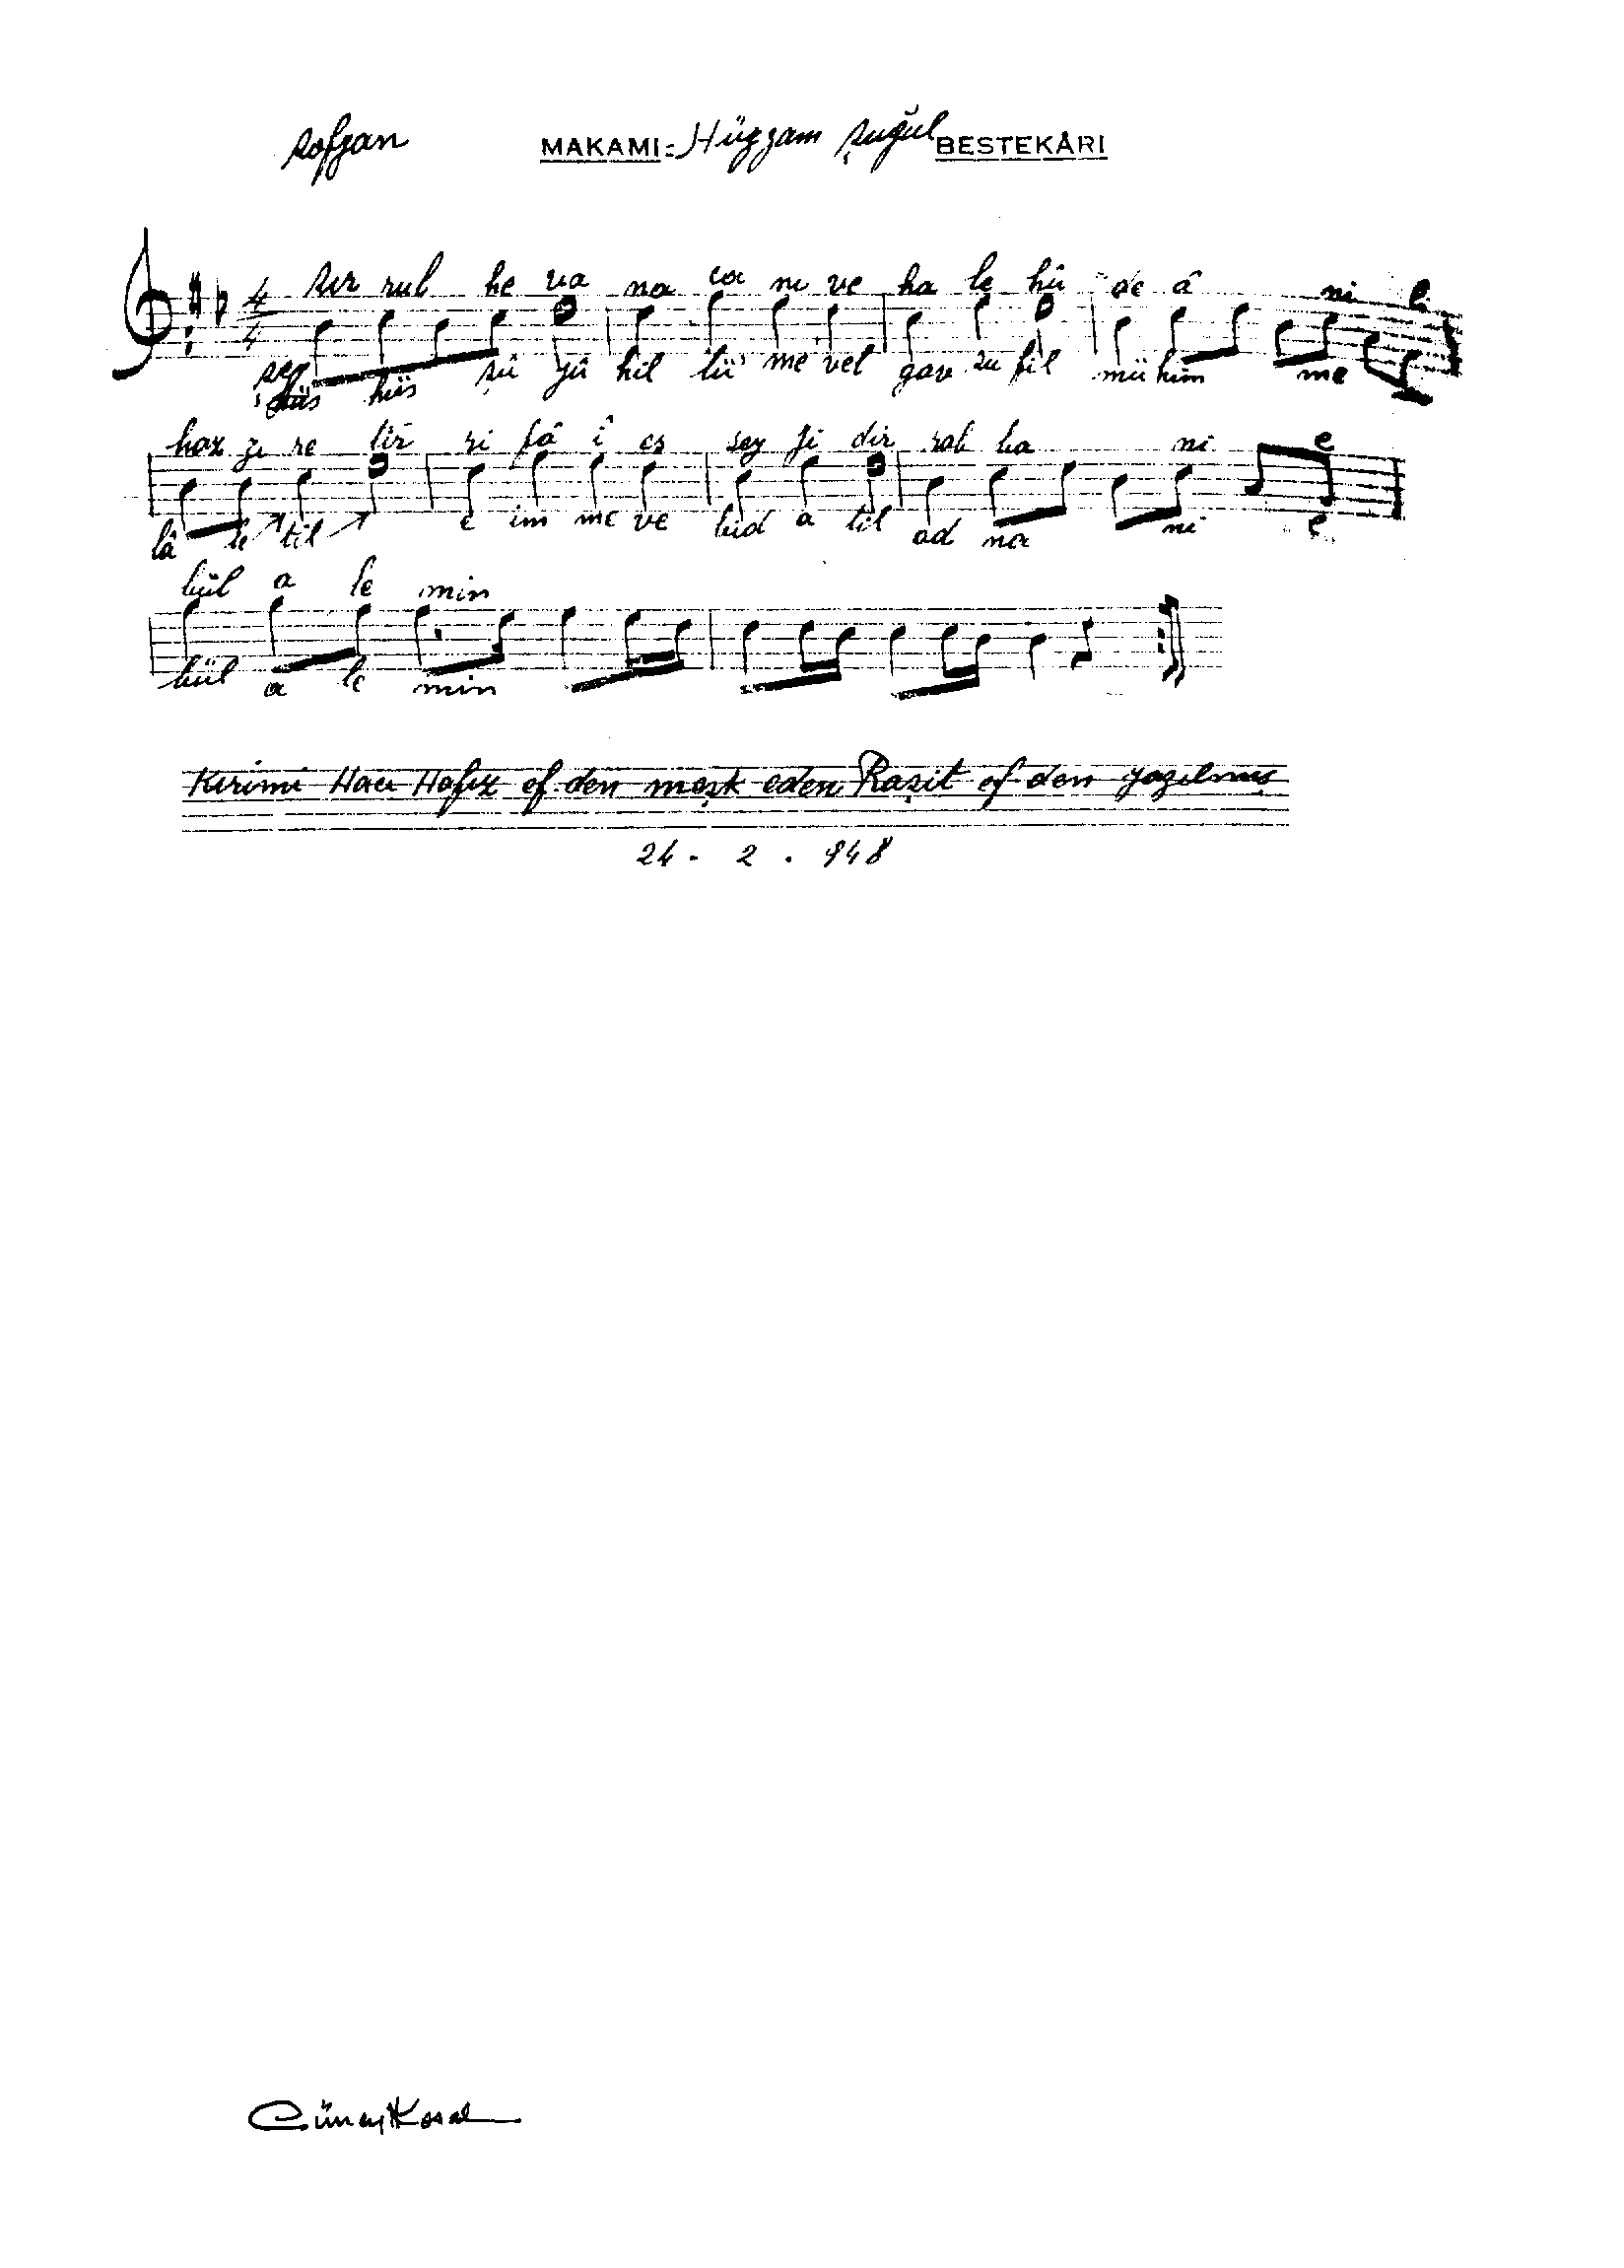 sofyan MAKAMI: Hüzzam şuğul BESTEKÂRI
4 sır rul he va na ca ni ve ha le hû de â ni e
4 şey hüs şû yû hil tü me vel gav su fil mü him me
haz zı re tir ri fâ î es sey yi dir rab ba ni e
lâ le til e im me ve bid a til ad na ni e
bül a le min
bül a le min
Kırimi Hacı Hafız ef den meşk eden Raşit ef den yazılmış
24 . 2 . 948
Cüneyt Kosal